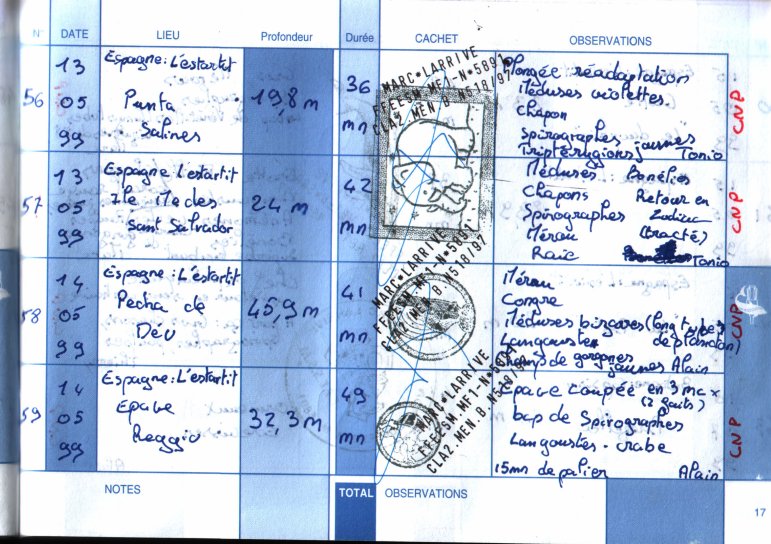 N° DATE LIEU Profondeur Durée CACHET OBSERVATIONS
56
13
05
99
Espagne: L'estartit
Punta
Salines
19,8 m
36
mn
MARC*LARRIVE
FFESSM.MF1-N°5891
CLAZ.MEN.B.N518/97
Plongée réadaptation
Méduses violettes.
Chapon
Spirographes jaunes
Triptérugions Tonio
CNP
57
13
05
99
Espagne L'estartit
Ile Medes
Sant Salvador
24 m
42
mn
MARC*LARRIVE
FFESSM.MF1-N°5891
CLAZ.MEN.B.N518/97
Méduses Bonélies
Chapons Retour en
Spirographes Zodiac
Mérou (tracté)
Raie Tonio
CNP
58
14
05
99
Espagne: L'estartit
Pecha de
Déu
45,9 m
41
mn
Mérou
Congre
Méduses bizarres (long tubes
Langouste de plancton)
Champs de gorgones
jaunes Alain
CNP
59
14
05
99
Espagne: L'estartit
Epave
Reggio
32,3 m
49
mn
MARC*LARRIVE
FFESSM.MF1-N°5891
CLAZ.MEN.B.N518/97
Epave coupée en 3 mcx
bcp de Spirographes
Langoustes - crabe
15mn de palier Alain
CNP
NOTES TOTAL OBSERVATIONS
17